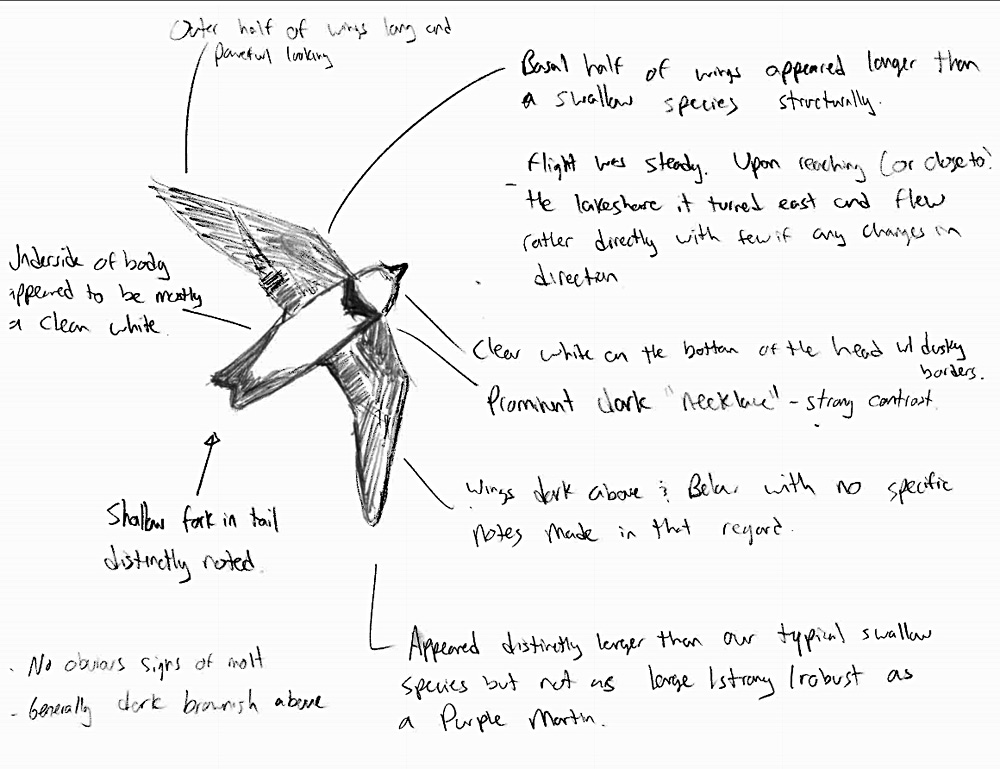 Outer half of wings long and
powerful looking
Basal half of wings appeared longer than
a swallow species structurally.
- Flight was steady. Upon reaching (or close to)
the lakeshore it turned east and flew
rather directly with few if any changes in
direction
Underside of body
appeared to be mostly
a clean white.
Clear white on the bottom of the head w/ dusky
borders.
Prominent dark "necklace" - strong contrast.
Wings dark above & Below with no specific
notes made in that regard.
Shallow fork in tail
distinctly noted.
Appeared distinctly larger than our typical swallow
species but not as large / strong / robust as
a Purple Martin.
. No obvious signs of molt
- Generally dark brownish above